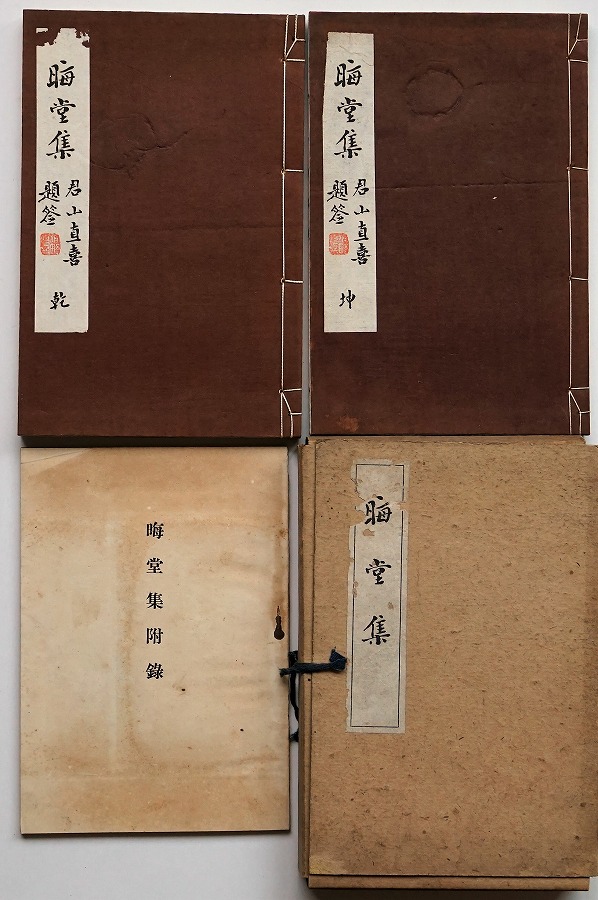 晦堂集
君山直喜
題簽
乾
晦堂集
君山直喜
題簽
坤
晦堂集附錄
晦堂集